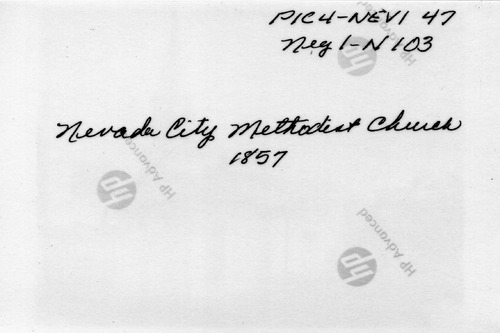 PIC4-NEVI 47
Neg 1-N 103
Nevada City Methodist Church
1857
HP Advanced
HP Advanced
HP Advanced